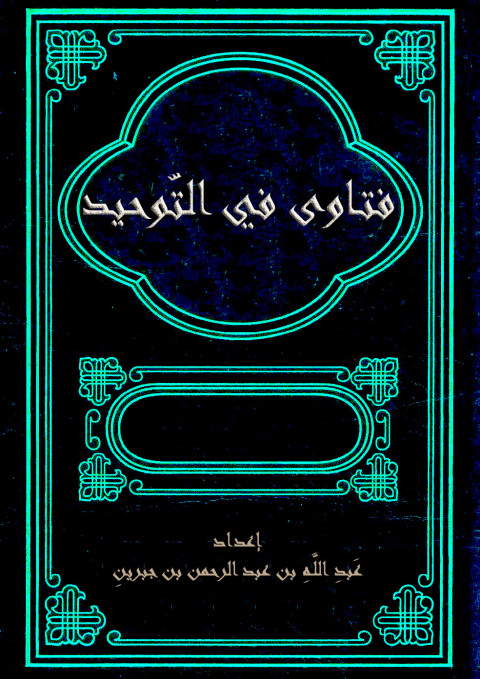 فتاوى في التّوحيد
إعداد
عَبدِ اللَّهِ بن عبد الرحمن بن جبرينِ